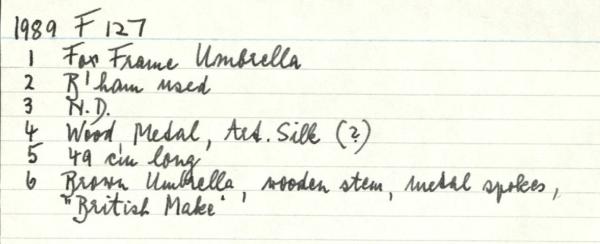 1989 F 127
1 Fox Frame Umbrella
2 B'ham used
3 N.D.
4 Wood, Metal, Art. Silk (?)
5 49 cm long
6 Brown Umbrella, wooden stem, metal spokes,
"British Make"